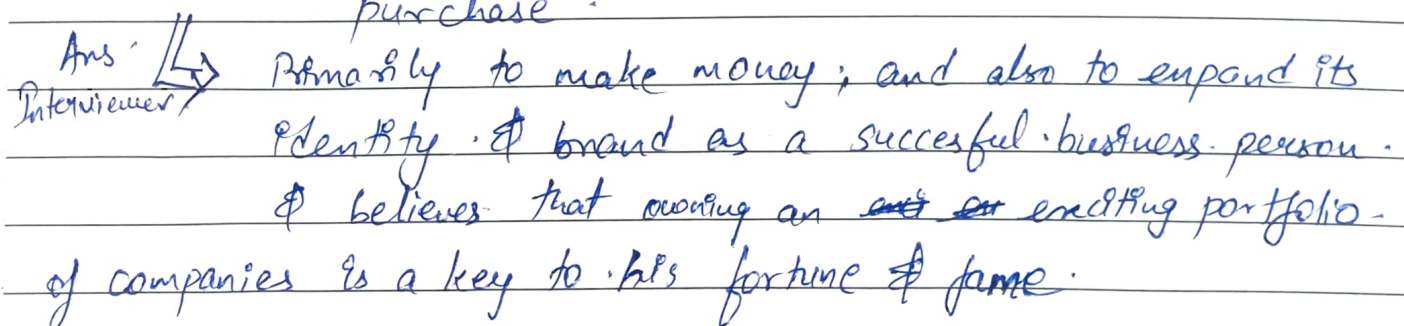 purchase.
Ans.
Interviewer
Primarily to make money; and also to expand its
identity. & brand as a succesful business person.
& believes that owning an exciting portfolio
of companies is a key to his fortune & fame.